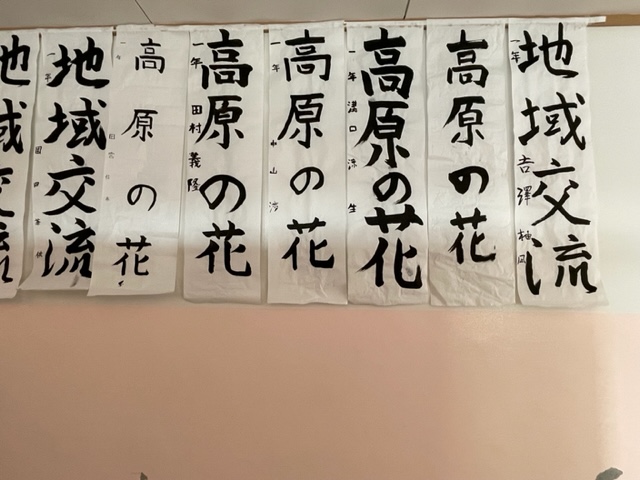 地域交流
一年
吉澤柚凪
高原の花
高原の花
一年
溝口涼生
高原の花
一年
高原の花
一年
田村義隆
高原の花
一年
地域交流
一年
地域交流